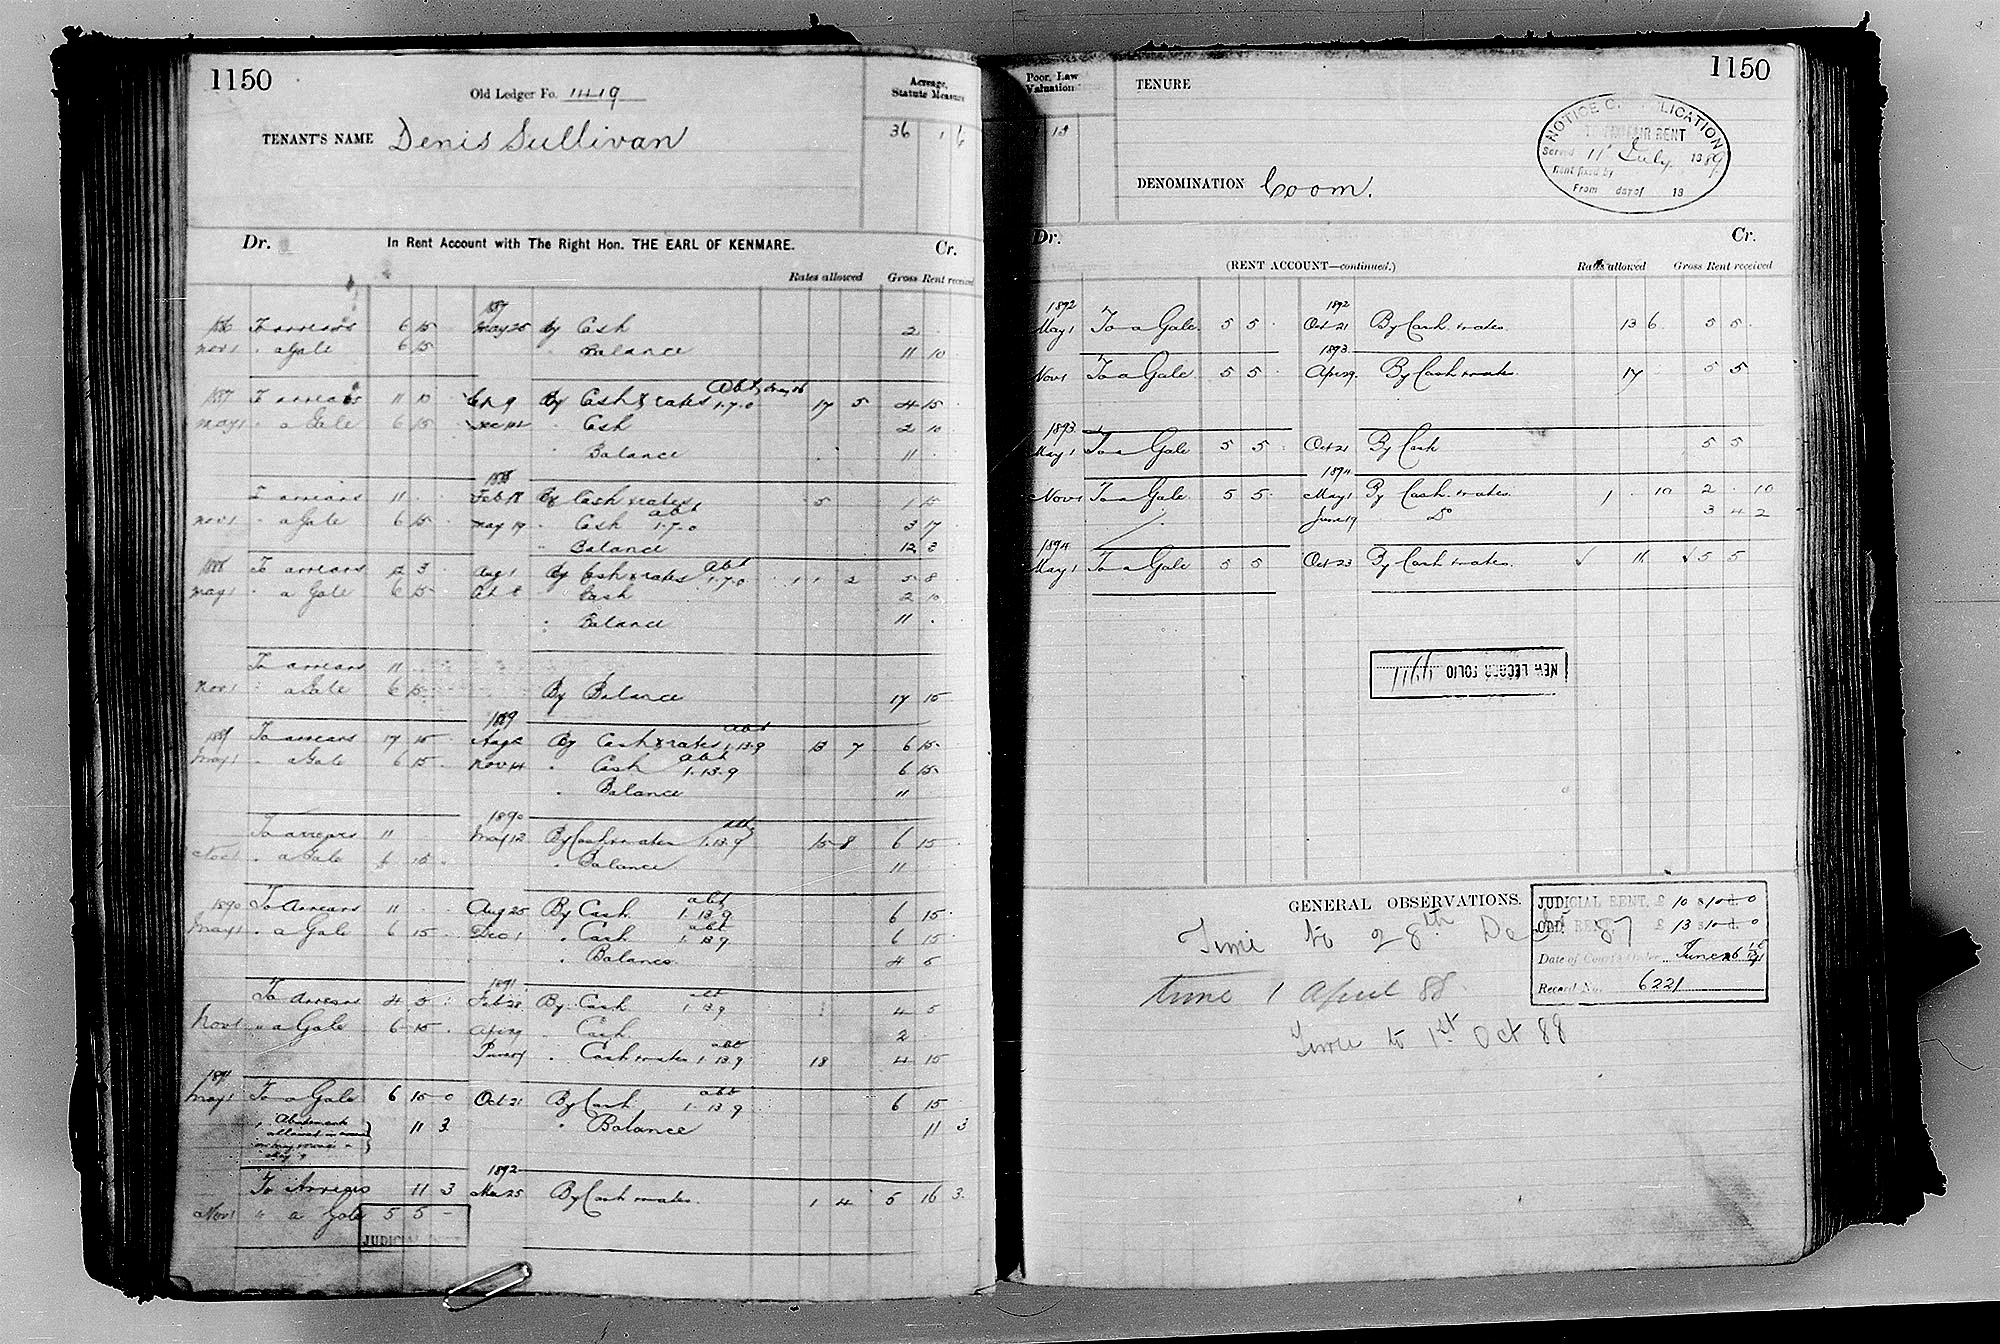 1150
Old Ledger Fo. 1419
Acreage, Statute Measure
TENANT'S NAME Denis Sullivan
36 1
Dr. In Rent Account with The Right Hon. THE EARL OF KENMARE. Cr.
Rates allowed Gross Rent received
1887
1886 To arrears 6 15 May 25 By Cash 2
Nov 1 " a Gale 6 15 " Balance 11 10
1887 To arrears 11 10 By Cash & rates abt 1.7.0 17 5 4 15
May 1 " a Gale 6 15 " Cash 2 10
" Balance 11
1888
To arrears 11 Feb 18 By Cash & rates 5 1 15
Nov 1 " a Gale 6 15 May 19 " Cash abt 1.7.0 3 17
" Balance 12 3
1888 To arrears 12 3 Aug 1 By Cash & rates abt 1.7.0 1 1 2 5 8
May 1 " a Gale 6 15 " Cash 2 10
" Balance 11
To arrears 11
Nov 1 " a Gale 6 15 By Balance 17 15
1889
1889 To arrears 17 15 Aug 2 By Cash & rates abt 1.13.9 13 7 6 15
May 1 " a Gale 6 15 Nov 14 " Cash abt 1.13.9 6 15
" Balance 11
1890
To arrears 11 May 12 By Cash & rates abt 1.13.9 15 8 6 15
Nov 1 " a Gale 6 15 " Balance 11
1890 To Arrears 11 Aug 25 By Cash abt 1.13.9 6 15
May 1 " a Gale 6 15 Dec 1 " Cash abt 1.13.9 6 15
" Balance 4 5
1891
To Arrears 4 5 Feb 28 By Cash abt 1.13.9 4 5
Nov 1 " a Gale 6 15 Apr 29 " Cash 2
" Cash & rates abt 1.13.9 18 4 15
1891
May 1 To a Gale 6 15 0 Oct 21 By Cash abt 1.13.9 6 15
" Abatements allowed 11 3 " Balance 11 3
1892
To Arrears 11 3 Mar 25 By Cash & rates 1 4 5 16 3
Nov 1 " a Gale 5 5 -
JUDICIAL RENT
Poor Law Valuation
TENURE
1150
NOTICE OF APPLICATION
TO FIX FAIR RENT
Served 11 July 1889
Rent fixed by
From day of 18
DENOMINATION Coom.
Dr. Cr.
(RENT ACCOUNT—continued.) Rates allowed Gross Rent received
1892 1892
May 1 To a Gale 5 5 Oct 21 By Cash & rates 13 6 5 5
1893
Nov 1 To a Gale 5 5 Apr 29 By Cash & rates 17 5 5
1893
May 1 To a Gale 5 5 Oct 21 By Cash 5 5
1894
Nov 1 To a Gale 5 5 May 1 By Cash & rates 1 10 2 10
June 19 Do 3 4 2
1894
May 1 To a Gale 5 5 Oct 23 By Cash & rates 16 5 5
NEW LEDGER FOLIO
GENERAL OBSERVATIONS.
JUDICIAL RENT, £ 10 s 10 d 0
OLD RENT, £ 13 s 10 d 0
Date of Court's Order June 16
Record No. 6221
Time to 28th Dec 87
time 1 April 88
Time to 1st Oct 88